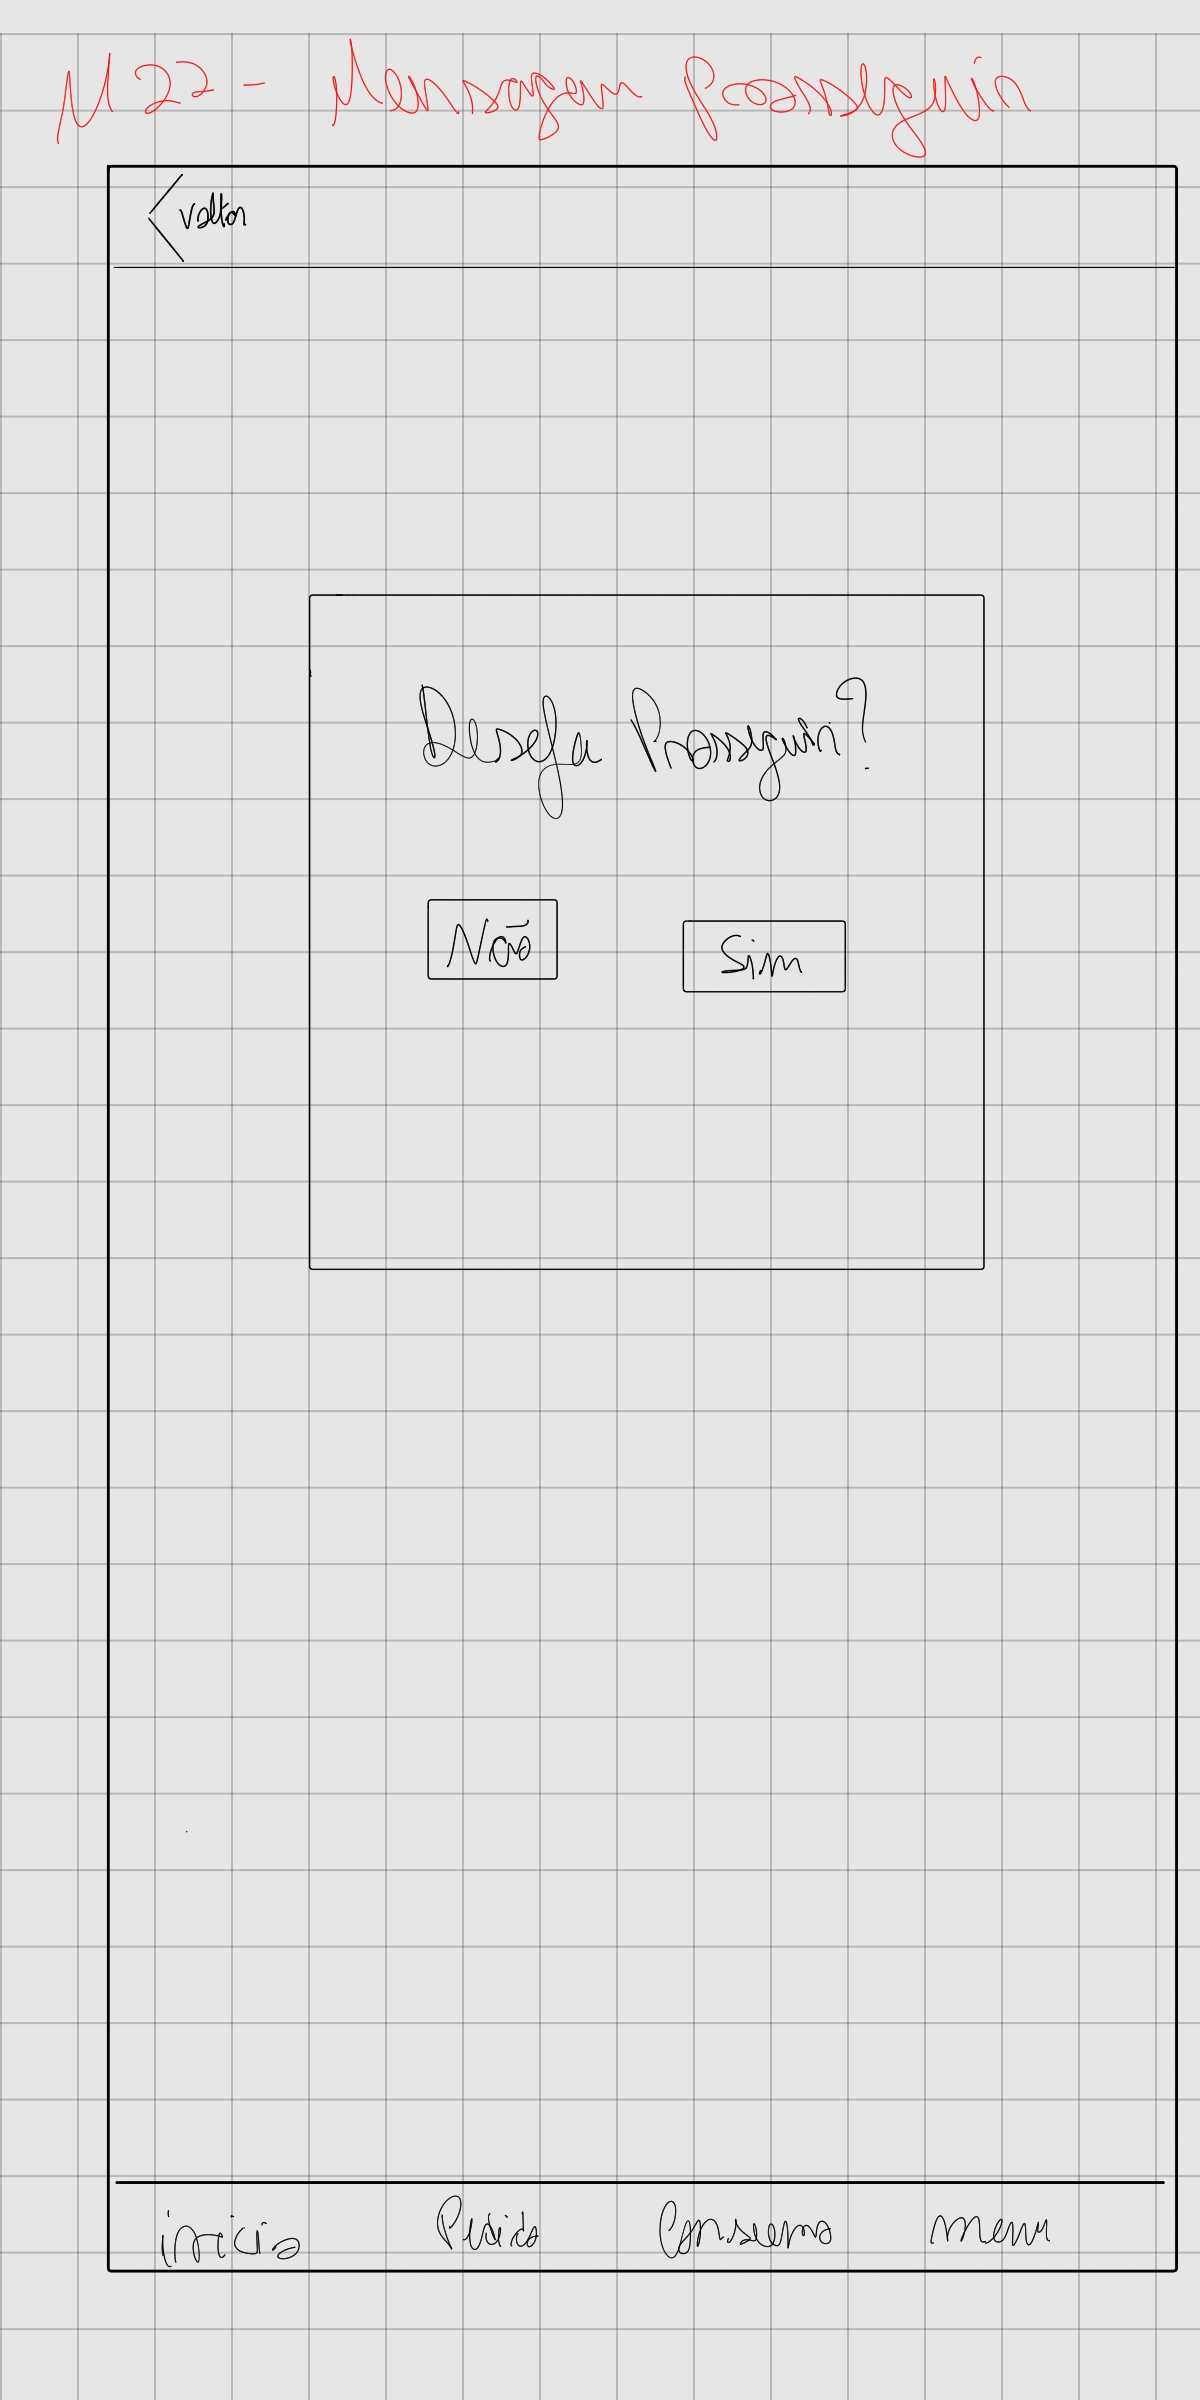 M 22 - Mensagem Prosseguir
Voltar
Deseja Prosseguir?
Não
Sim
início Pedido Consumo menu